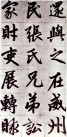 還與之在州
民張氏兄弟訟
家財吏展轉賕